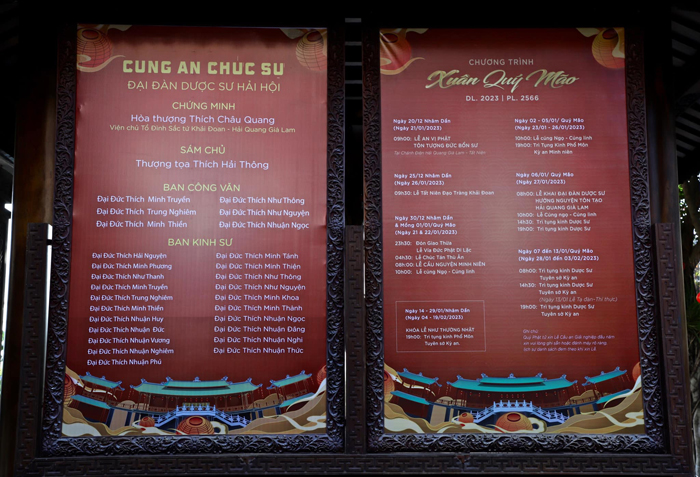 CUNG AN CHỨC SỰ
ĐẠI ĐÀN DƯỢC SƯ HẢI HỘI
CHỨNG MINH
Hòa thượng Thích Châu Quang
Viện chủ Tổ Đình Sắc tứ Khải Đoan - Hải Quang Già Lam
SÁM CHỦ
Thượng tọa Thích Hải Thông
BAN CÔNG VĂN
Đại Đức Thích Minh Truyền
Đại Đức Thích Như Thông
Đại Đức Thích Trung Nghiêm
Đại Đức Thích Như Nguyện
Đại Đức Thích Minh Thiền
Đại Đức Thích Nhuận Ngọc
BAN KINH SƯ
Đại Đức Thích Hải Nguyện
Đại Đức Thích Minh Phương
Đại Đức Thích Như Thanh
Đại Đức Thích Minh Truyền
Đại Đức Thích Trung Nghiêm
Đại Đức Thích Minh Thiền
Đại Đức Thích Nhuận Huy
Đại Đức Thích Nhuận Đức
Đại Đức Thích Nhuận Vương
Đại Đức Thích Nhuận Nghiêm
Đại Đức Thích Nhuận Phú
Đại Đức Thích Minh Tánh
Đại Đức Thích Minh Thiện
Đại Đức Thích Như Thông
Đại Đức Thích Như Nguyện
Đại Đức Thích Minh Khoa
Đại Đức Thích Minh Thành
Đại Đức Thích Nhuận Ngọc
Đại Đức Thích Nhuận Đăng
Đại Đức Thích Nhuận Nghi
Đại Đức Thích Nhuận Thức
CHƯƠNG TRÌNH
Xuân Quý Mão
DL. 2023 | PL. 2566
Ngày 20/12 Nhâm Dần
(Ngày 21/01/2023)
09h00: LỄ AN VỊ PHẬT
TÔN TƯỢNG ĐỨC BỔN SƯ
Ngày 25/12 Nhâm Dần
(Ngày 26/01/2023)
09h30: Lễ Tất Niên Đạo Tràng Khải Đoan
Ngày 30/12 Nhâm Dần
& Mồng 01/01/Quý Mão
(Ngày 21 & 22/01/2023)
23h30: Đón Giao Thừa
Lễ Vía Đức Phật Di Lặc
04h30: Lễ Chúc Tán Thù Ân
08h00: LỄ CẦU NGUYỆN MINH NIÊN
10h00: Lễ cúng Ngọ - Cúng linh
Ngày 14 - 29/01/Nhâm Dần
(Ngày 04 - 19/02/2023)
KHÓA LỄ NHƯ THƯỜNG NHẬT
19h00: Trì tụng kinh Phổ Môn
Tuyên sớ Kỳ an.
Ngày 02 - 05/01/ Quý Mão
(Ngày 23/01 - 26/01/2023)
10h00: Lễ cúng Ngọ - Cúng linh
19h00: Trì Tụng Kinh Phổ Môn
Kỳ an Minh niên
Ngày 06/01/ Quý Mão
(Ngày 27/01/2023)
08h00: LỄ KHAI ĐẠI ĐÀN DƯỢC SƯ
HƯỚNG NGUYỆN TÔN TẠO
HẢI QUANG GIÀ LAM
10h00: Lễ Cúng Ngọ - Cúng linh
14h30: Trì tụng kinh Dược Sư
19h00: Trì tụng kinh Dược Sư
Ngày 07 đến 13/01/Quý Mão
(Ngày 28/01 đến 03/02/2023)
08h00: Trì tụng kinh Dược Sư
Tuyên sớ Kỳ an
14h30: Trì tụng kinh Dược Sư
Tuyên sớ Kỳ an
(Ngày 13/01 Lễ Tạ đàn-Thí thực)
19h00: Trì tụng kinh Dược Sư
Tuyên sớ Kỳ an
Ghi chú: